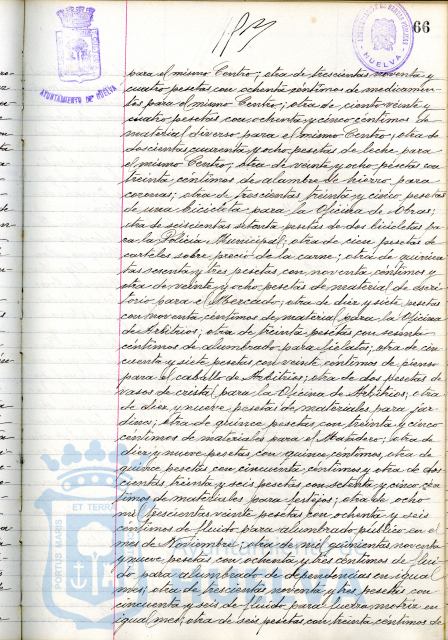 66
AYUNTAMIENTO DE HUELVA
HUELVA
para el mismo Centro; otra de trescientas noventa y
cuatro pesetas con ochenta céntimos de medicamen-
tos para el mismo Centro; otra de ciento veinte y
cuatro pesetas con ochenta y cinco céntimos de
material diverso para el mismo Centro; otra de
doscientas cuarenta y ocho pesetas de leche para
el mismo Centro; otra de veinte y ocho pesetas con
treinta céntimos de alambre de hierro para
coronas; otra de trescientas treinta y cinco pesetas
de una bicicleta para la Oficina de Obras;
otra de seiscientas setenta pesetas de dos bicicletas pa-
ra la Policía Municipal; otra de cien pesetas de
carteles sobre precio de la carne; otra de quinien-
tas sesenta y tres pesetas con noventa céntimos y
otra de veinte y ocho pesetas de material de escri-
torio para el Mercado; otra de diez y siete pesetas
con noventa céntimos de material para la Oficina
de Arbitrios; otra de treinta pesetas con sesenta
céntimos de alumbrado para fielatos; otra de cin-
cuenta y siete pesetas con veinte céntimos de pienso
para el caballo de Arbitrios; otra de dos pesetas de
vasos de cristal para la Oficina de Arbitrios; otra
de diez y nueve pesetas de materiales para jar-
dines; otra de quince pesetas con treinta y cinco
céntimos de materiales para el Matadero; otra de
diez y nueve pesetas con quince céntimos, otra de
quince pesetas con cincuenta céntimos y otra de dos-
cientas treinta y seis pesetas con setenta y cinco cén-
timos de materiales para festejos; otra de ocho
mil trescientas veinte pesetas con ochenta y seis
céntimos de fluido para alumbrado público en el
mes de Noviembre; otra de mil quinientas noventa
y nueve pesetas con ochenta y tres céntimos de flui-
do para alumbrado de dependencias en igual
mes; otra de trescientas noventa y tres pesetas con
cincuenta y seis de fluido para fuerza motriz en
igual mes; otra de seis pesetas con treinta céntimos de
PORTUS MARIS ET TERRAE
Ayuntamiento de
HUELVA